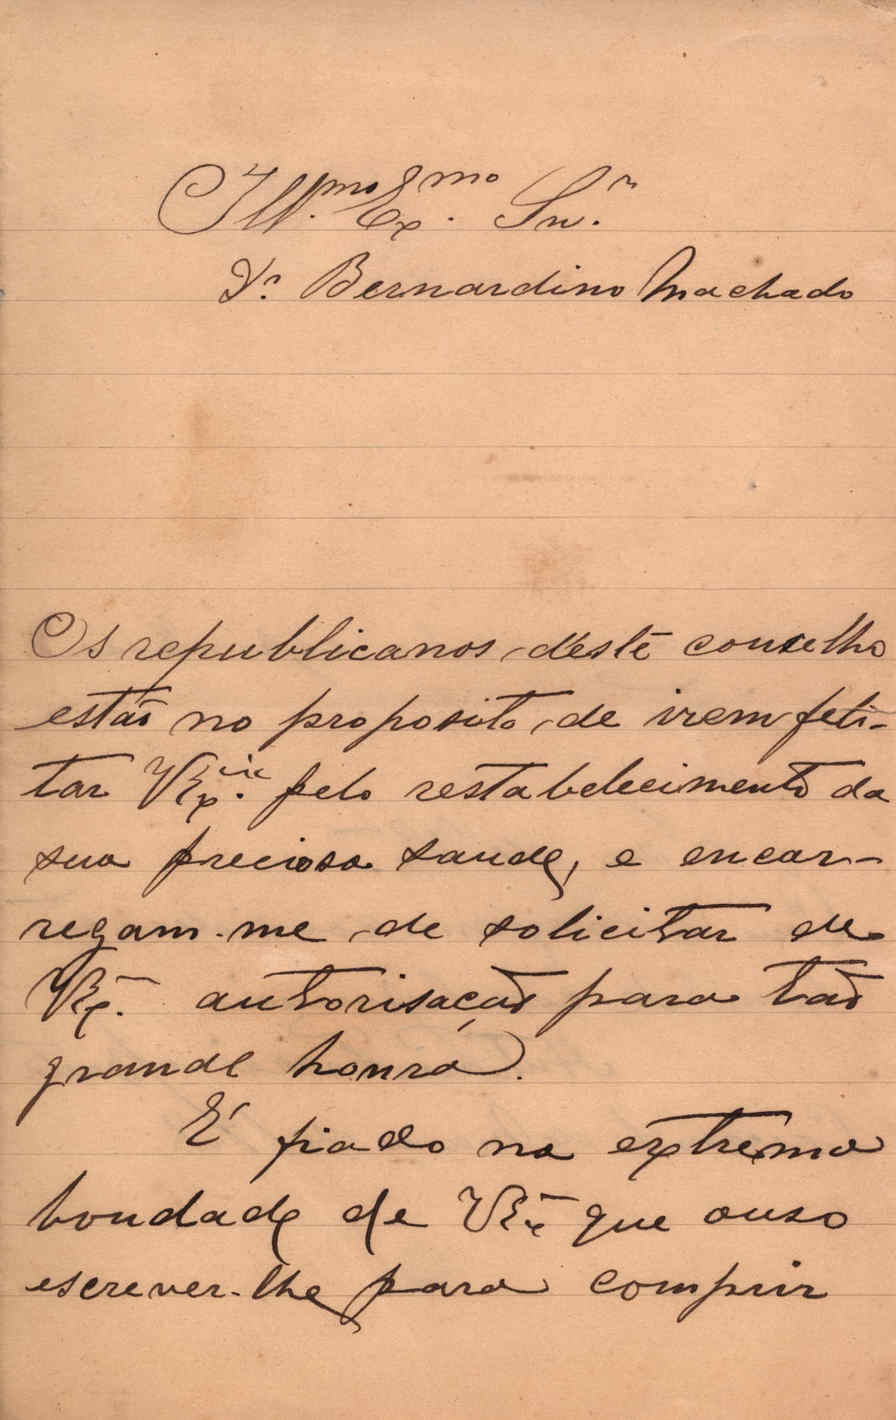 Ill.mo Ex.mo Snr.
Dr. Bernardino Machado
Os republicanos d'este concelho
estão no proposito de irem feli-
tar VEx.cia pelo restabelecimento da
sua preciosa saude, e encar-
regam-me de solicitar de
VEx.ª autorisação para tão
grande honra.
É fiado na extrema
bondade de VExª que ouso
escrever-lhe para comprir